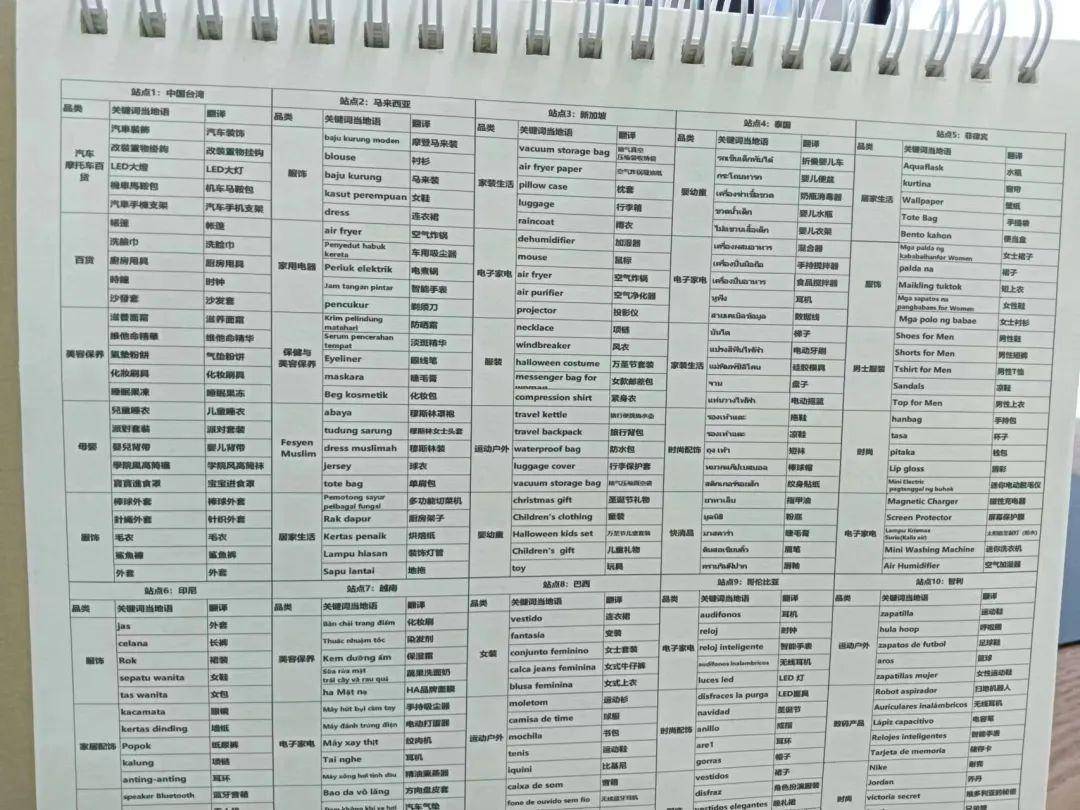 站点1：中国台湾
品类 关键词当地语 翻译
汽车摩托车百货
汽車裝飾 汽车装饰
改裝置物掛鈎 改装置物挂钩
LED大燈 LED大灯
機車馬鞍包 机车马鞍包
汽車手機支架 汽车手机支架
百货
帳篷 帐篷
洗臉巾 洗脸巾
廚房用具 厨房用具
時鐘 时钟
沙發套 沙发套
美容保养
滋養面霜 滋养面霜
維他命精華 维他命精华
氣墊粉餅 气垫粉饼
化妝刷具 化妆刷具
睡眠果凍 睡眠果冻
母婴
兒童睡衣 儿童睡衣
派對套裝 派对套装
嬰兒背帶 婴儿背带
學院風高筒襪 学院风高筒袜
寶寶進食罩 宝宝进食罩
服饰
棒球外套 棒球外套
針織外套 针织外套
毛衣 毛衣
鯊魚褲 鲨鱼裤
外套 外套
站点2：马来西亚
品类 关键词当地语 翻译
服饰
baju kurung moden 摩登马来装
blouse 衬衫
baju kurung 马来装
kasut perempuan 女鞋
dress 连衣裙
家用电器
air fryer 空气炸锅
Penyedut habuk kereta 车用吸尘器
Periuk elektrik 电煮锅
Jam tangan pintar 智能手表
pencukur 剃须刀
保健与美容保养
Krim pelindung matahari 防晒霜
Serum pencerahan tempat 淡斑精华
Eyeliner 眼线笔
maskara 睫毛膏
Beg kosmetik 化妆包
Fesyen Muslim
abaya 穆斯林罩袍
tudung sarung 穆斯林女士头套
dress muslimah 穆斯林装
jersey 球衣
tote bag 单肩包
居家生活
Pemotong sayur pelbagai fungsi 多功能切菜机
Rak dapur 厨房架子
Kertas penaik 烘焙纸
Lampu hiasan 装饰灯管
Sapu lantai 地拖
站点3：新加坡
品类 关键词当地语 翻译
家装生活
vacuum storage bag 抽气真空压缩袋收纳袋
air fryer paper 空气炸锅吸油纸
pillow case 枕套
luggage 行李箱
raincoat 雨衣
电子家电
dehumidifier 加湿器
mouse 鼠标
air fryer 空气炸锅
air purifier 空气净化器
projector 投影仪
服装
necklace 项链
windbreaker 风衣
halloween costume 万圣节套装
messenger bag for woman 女款邮差包
compression shirt 紧身衣
运动户外
travel kettle 旅行便携热水壶
travel backpack 旅行背包
waterproof bag 防水包
luggage cover 行李保护套
vacuum storage bag 抽气压缩真空袋
婴幼童
christmas gift 圣诞节礼物
Children's clothing 童装
Halloween kids set 万圣节儿童套装
Children's gift 儿童礼物
toy 玩具
站点4：泰国
品类 关键词当地语 翻译
婴幼童
รถเข็นเด็กพับได้ 折叠婴儿车
กระโถนทารก 婴儿便盆
เครื่องฆ่าเชื้อขวด 奶瓶消毒器
ขวดน้ำเด็ก 婴儿水瓶
ไม้แขวนเสื้อเด็ก 婴儿衣架
电子家电
เครื่องผสมอาหาร 混合器
เครื่องปั่นมือถือ 手持搅拌器
เครื่องปั่นอาหาร 食品搅拌器
หูฟัง 耳机
สายเคเบิลข้อมูล 数据线
家装生活
บันได 梯子
แปรงสีฟันไฟฟ้า 电动牙刷
แม่พิมพ์ซิลิโคน 硅胶模具
จาน 盘子
电动摇篮
时尚配饰
รองเท้าแตะ 拖鞋
รองเท้าแตะ 凉鞋
ถุงเท้า 短袜
หมวกแก๊ปเบสบอล 棒球帽
สติกเกอร์รอยสัก 纹身贴纸
快消品
ยาทาเล็บ 指甲油
มูลนิธิ 粉底
มาสคาร่า 睫毛膏
ดินสอเขียนคิ้ว 眉笔
眉釉
站点5：菲律宾
品类 关键词当地语 翻译
居家生活
Aquaflask 水瓶
kurtina 窗帘
Wallpaper 壁纸
Tote Bag 手提袋
Bento kahon 便当盒
服饰
Mga palda ng kababaihanfor Women 女士裙子
palda na 裙子
Maikling tuktok 短上衣
Mga sapatos na pangbabams for Women 女性鞋
Mga polo ng babae 女士衬衫
男士服装
Shoes for Men 男性鞋
Shorts for Men 男性短裤
Tshirt for Men 男性T恤
Sandals 凉鞋
Top for Men 男性上衣
时尚
hanbag 手持包
tasa 杯子
pitaka 钱包
Lip gloss 唇彩
Mini Electric pagtanggal ng buhok 迷你电动脱毛仪
电子家电
Magnetic Charger 磁性充电器
Screen Protector 屏幕保护膜
Mini Washing Machine 迷你洗衣机
Air Humidifier 空气加湿器
站点6：印尼
品类 关键词当地语 翻译
服饰
jas 外套
celana 长裤
Rok 裙装
sepatu wanita 女鞋
tas wanita 女包
家居配饰
kacamata 眼镜
kertas dinding 墙纸
Popok 纸尿裤
kalung 项链
anting-anting 耳环
speaker Bluetooth 蓝牙音箱
站点7：越南
品类 关键词当地语 翻译
美容保养
Bàn chải trang điểm 化妆刷
Thuốc nhuộm tóc 染发剂
Kem dưỡng ẩm 保湿霜
Sữa rửa mặt trái cây và rau quả 蔬果洗面奶
ha Mặt nạ HA品牌面膜
电子家电
Máy hút bụi cầm tay 手持吸尘器
Máy đánh trứng điện 电动打蛋器
Máy xay thịt 绞肉机
Tai nghe 耳机
Máy xông hơi tinh dầu 精油熏蒸器
Bao da vô lăng 方向盘皮套
汽车气垫
站点8：巴西
品类 关键词当地语 翻译
女装
vestido 连衣裙
fantasia 变装
conjunto feminino 女士套装
calca jeans feminina 女式牛仔裤
blusa feminina 女式上衣
运动户外
moletom 运动衫
camisa de time 球服
mochila 书包
tenis 运动鞋
iquini 比基尼
caixa de som 音箱
fone de ouvido sem fio 无线蓝牙耳机
站点9：哥伦比亚
品类 关键词当地语 翻译
电子家电
audífonos 耳机
reloj 时钟
reloj inteligente 智能手表
audífonos inalambricos 无线耳机
luces led LED 灯
时尚配饰
disfraces la purga LED面具
navidad 圣诞节
anillo 戒指
are1 耳环
gorras 帽子
vestidos 裙子
disfraz 角色扮演服装
vestidos elegantes 晚礼裙
站点10：智利
品类 关键词当地语 翻译
运动户外
zapatilla 运动鞋
hula hoop 呼啦圈
zapatos de futbol 足球鞋
aros 篮球
zapatillas mujer 女性运动鞋
数码产品
Robot aspirador 扫地机器人
Auriculares inalámbricos 无线耳机
Lápiz capacitivo 电容笔
Relojes inteligentes 智能手表
Tarjeta de memoria 储存卡
时尚
Nike 耐克
Jordan 乔丹
victoria secret 维多利亚的秘密